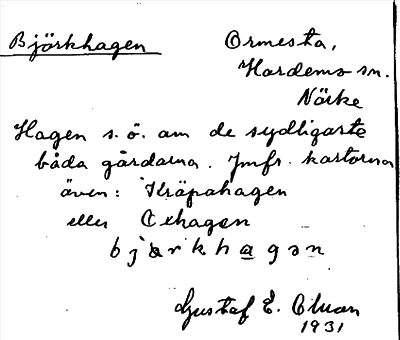 Björkhagen
Ormesta,
Hardemo sn.
Närke
Hagen s. ö. om de sydligaste
båda gårdarna. Jmfr. kartorna
även: Kräpahagen
eller Oxhagen
Gustaf E. Oluan
1931